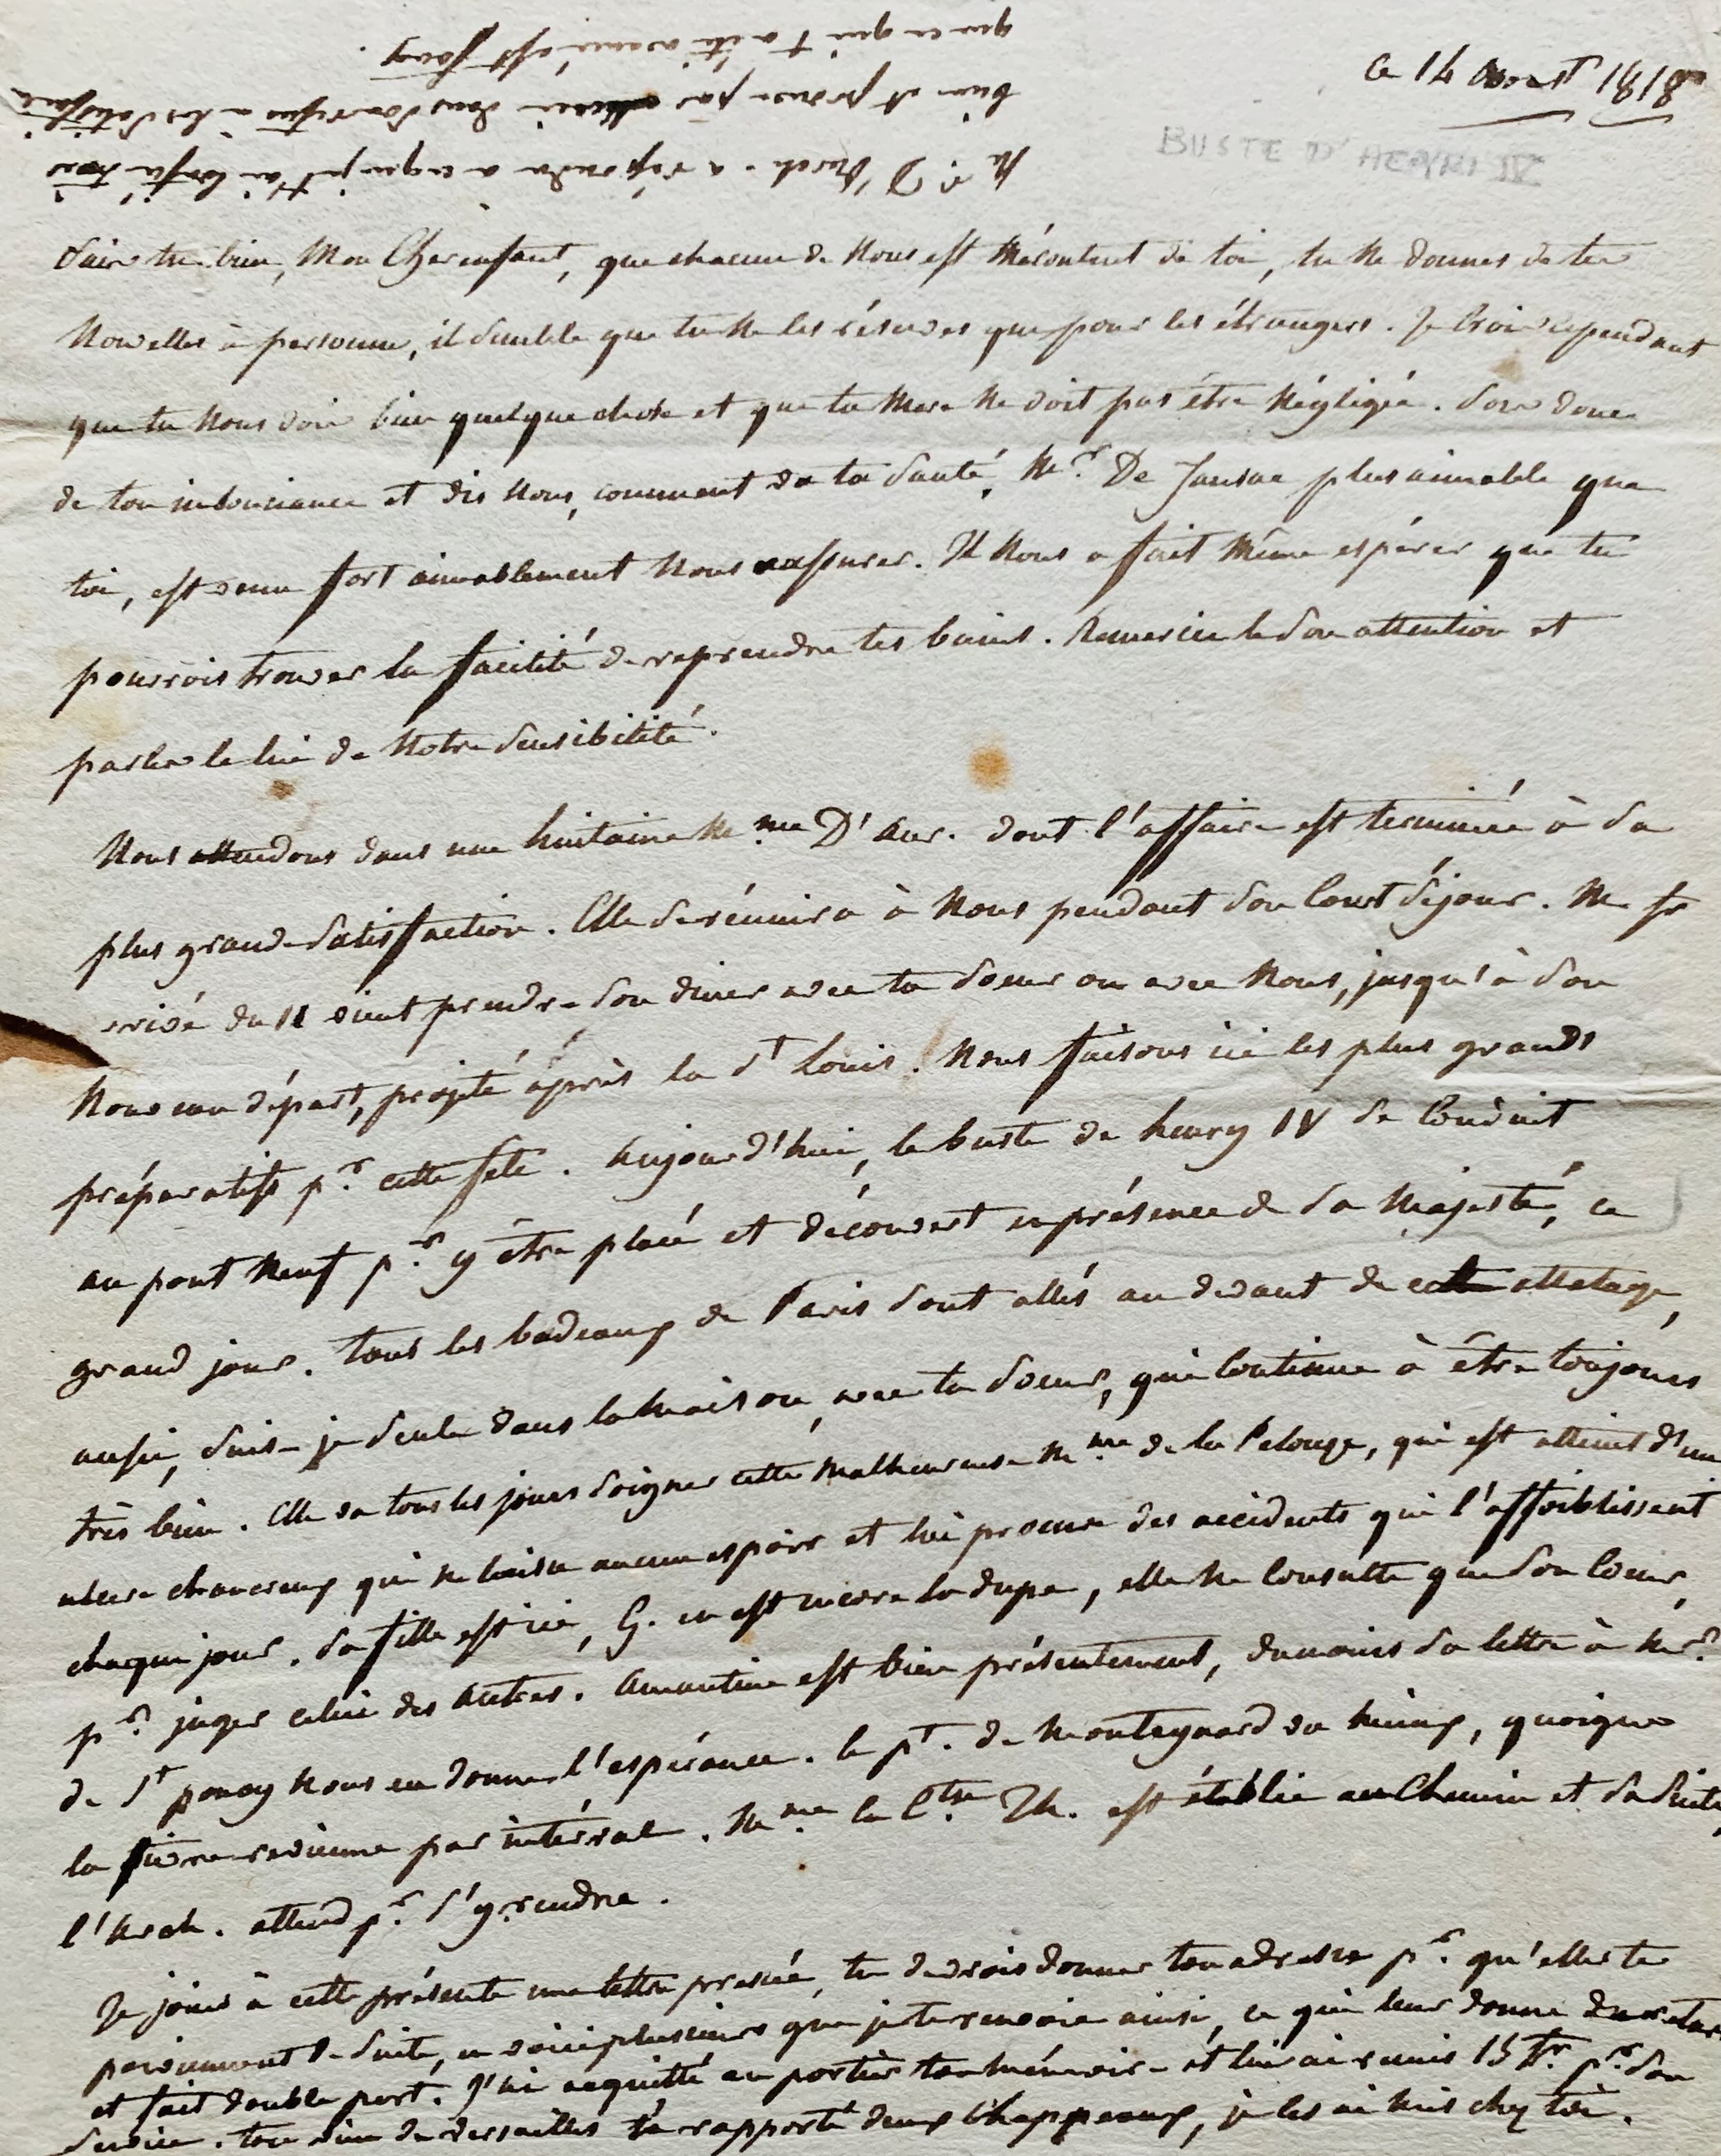 ce 14 aoust 1818
BUSTE D'HENRI IV
Sais tu bien, Mon Cher enfant, que chacun de Nous est Mécontent de toi, tu Ne donnes de tes
Nouvelles à personne, il semble que tu Ne les réserves que pour les étrangers. Je Crois cependant
que tu Nous dois bien quelque chose et que ta Mere Ne doit pas être Négligée. Sors donc
de ton insouciance et dis Nous, comment va ta Santé, Mr. De Jansac plus aimable que
toi, est venu fort aimablement Nous rassurer. Il Nous a fait Même espérer que tu
pourrois trouver la facilité de reprendre tes bains. Remercie le d'son attention et
parles le lui de Notre Sensibilité.
Nous attendons dans une huitaine Mme D'Aur. dont l'affaire est terminée à Sa
plus grande Satisfaction. Elle Se réunira à Nous pendant Son Court Séjour. M. fr
arrivé du 11 vient prendre Son diner avec ta Soeur ou avec Nous, jusqu'à Son
Nouveau départ, projeté après la St Louis. Nous faisons ici les plus grands
préparatifs pr. cette fete. Aujourd'hui, le buste de henry IV Se Conduit
au pont Neuf pr. y être placé et découvert en présence de Sa Majesté, ce
grand jour. tous les badeaux de Paris Sont allés au devant de cette attelage,
aussi, Suis-je Seule dans la Maison, avec ta Soeur, qui Continue à être toujours
très bien. Elle va tous les jours Soigner cette Malheureuse Mme de la Pelouze, qui est atteint d'un
ulcere chancreux qui Ne laisse aucun espoir et lui procure des accidents qui l'affoiblissent
chaque jour. Sa fille est ici, G. en est encore la dupe, elle Ne Consulte que Son Coeur,
pr. juger celui des Autres. Amantine est bien présentement, du moins Sa lettre à Mr.
de St ponoy Nous en donne l'espérance. le pt. de Monteynard va Mieux, quoique
la fievre revienne par interval. Mme la Ctsse Th. est établie au Chemin et Sa Suite,
l'Arch. attend pr. S'y rendre.
Je joins à cette présente une lettre pressée, tu devrois donner ton adresse pr. qu'elles te
parviennent de Suite, en voici plusieurs que je te renvoie ainsi, ce qui leur donne du retard
et fait double port. J'ai acquitté au portier ton Mémoire et lui ai remis 15 fr. pr. Son
Service. ton de versailles t'a rapporté deux Chappeaux, je les ai Mis chez toi.
Mr. D'Arch. a répondu a ce que je t'ai Confié très
bien et prouve par dans Sa
que ce qui t'a été avancé est faux.